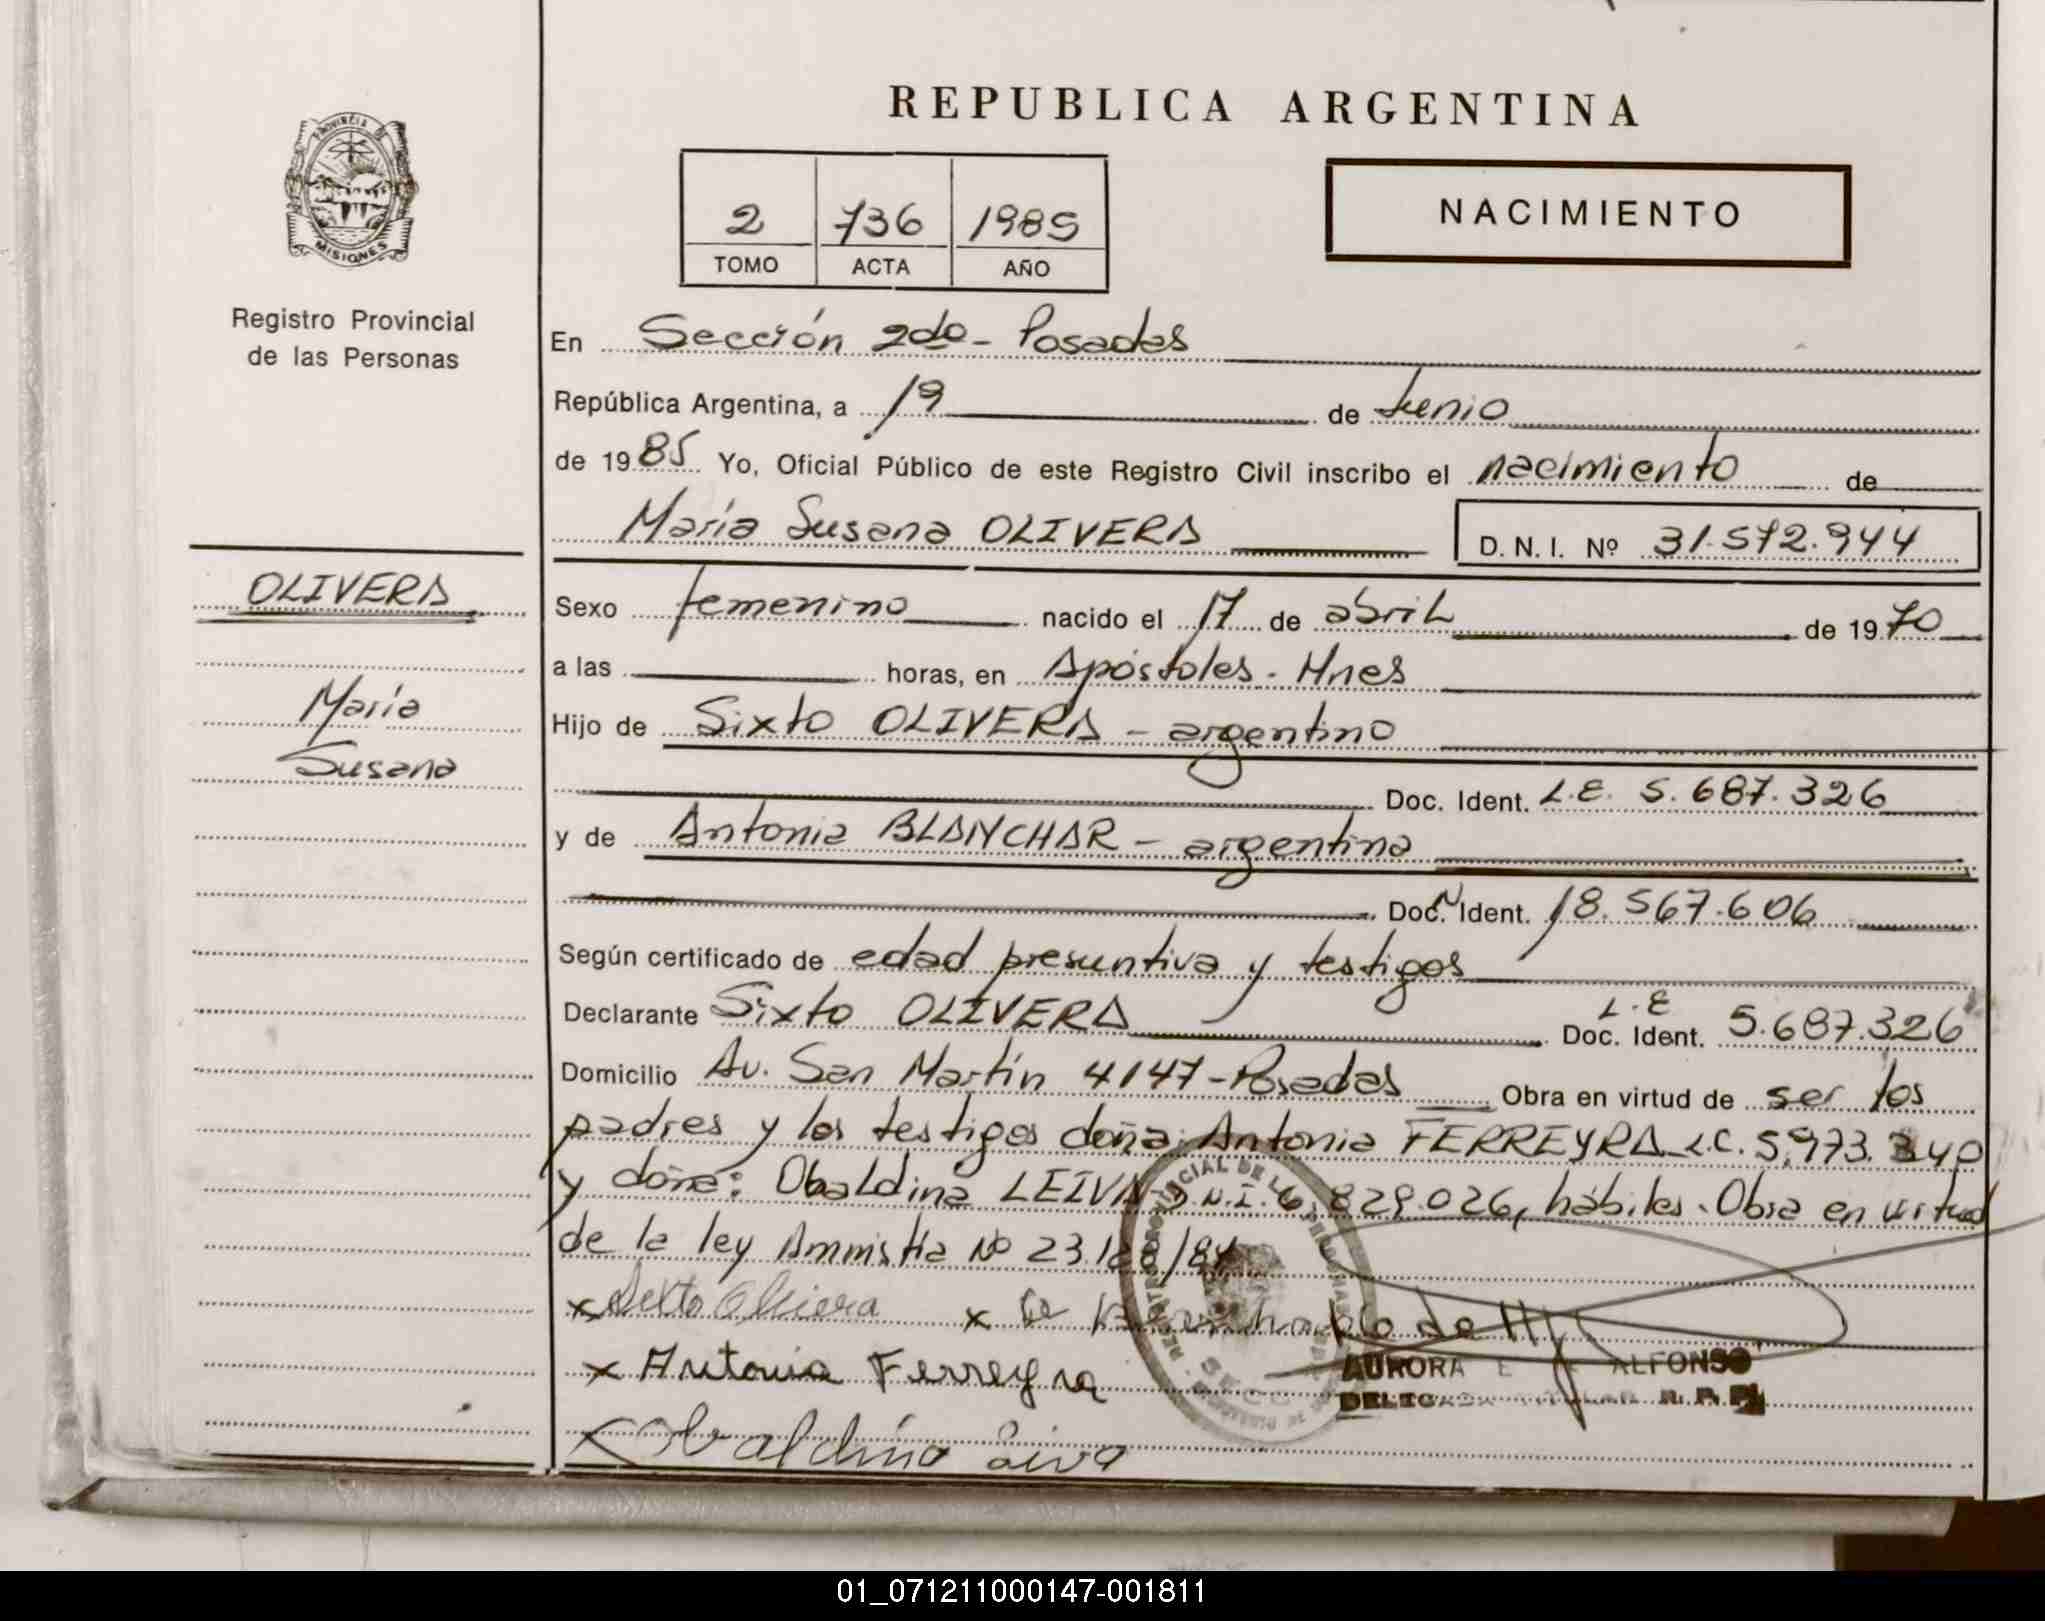 REPUBLICA ARGENTINA
PROVINCIA DE
MISIONES
Registro Provincial
de las Personas
2 736 1985
TOMO ACTA AÑO
NACIMIENTO
En Sección 2da - Posadas
República Argentina, a 19 de Junio
de 1985 Yo, Oficial Público de este Registro Civil inscribo el nacimiento de
María Susana OLIVERA D. N. I. Nº 31.572.944
OLIVERA
María
Susana
Sexo femenino nacido el 17 de abril de 1970
a las horas, en Apóstoles - Mnes
Hijo de Sixto OLIVERA - argentino
Doc. Ident. L.E. 5.687.326
y de Antonia BLANCHAR - argentina
Doc. Ident. 18.567.606
Según certificado de edad presuntiva y testigos
Declarante Sixto OLIVERA L.E Doc. Ident. 5.687.326
Domicilio Av. San Martín 4147 - Posadas Obra en virtud de ser los
padres y los testigos doña: Antonia FERREYRA L.C. 5.973.340
y doña: Obaldina LEIVA D.N.I. 6.829.026, hábiles. Obra en virtud
de la ley Amnistía Nº
x Sixto Olivera x
x Antonia Ferreyra
AURORA E ALFONSO
DELEGADA TITULAR R. P. P.
x Obaldina Leiva
01_071211000147-001811